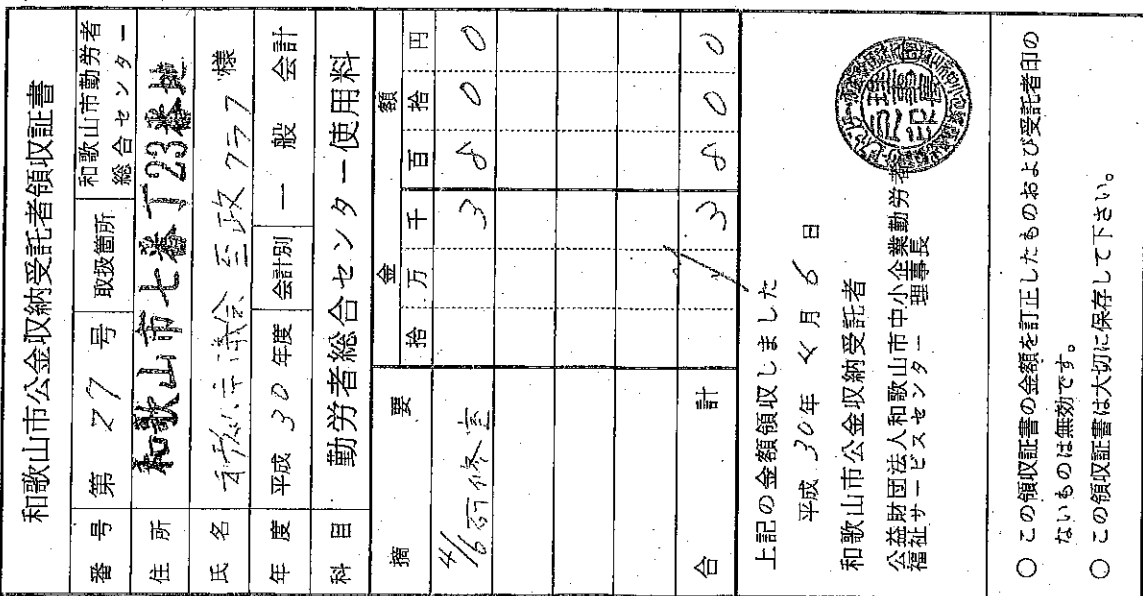 和歌山市公金収納受託者領収証書
番号 第 27 号 取扱箇所 和歌山市勤労者総合センター
住所 和歌山市七番丁23番地
氏名 和歌山市議会 至政クラブ 様
年度 平成 30 年度 会計別 一般会計
科目 勤労者総合センター使用料
摘要 金額
拾 万 千 百 拾 円
4/6 研修室 3 8 0 0
合計 3 8 0 0
上記の金額領収しました
平成 30年 4月 6日
和歌山市公金収納受託者
公益財団法人和歌山市中小企業勤労者
福祉サービスセンター 理事長
○ この領収証書の金額を訂正したものおよび受託者印の
ないものは無効です。
○ この領収証書は大切に保存して下さい。